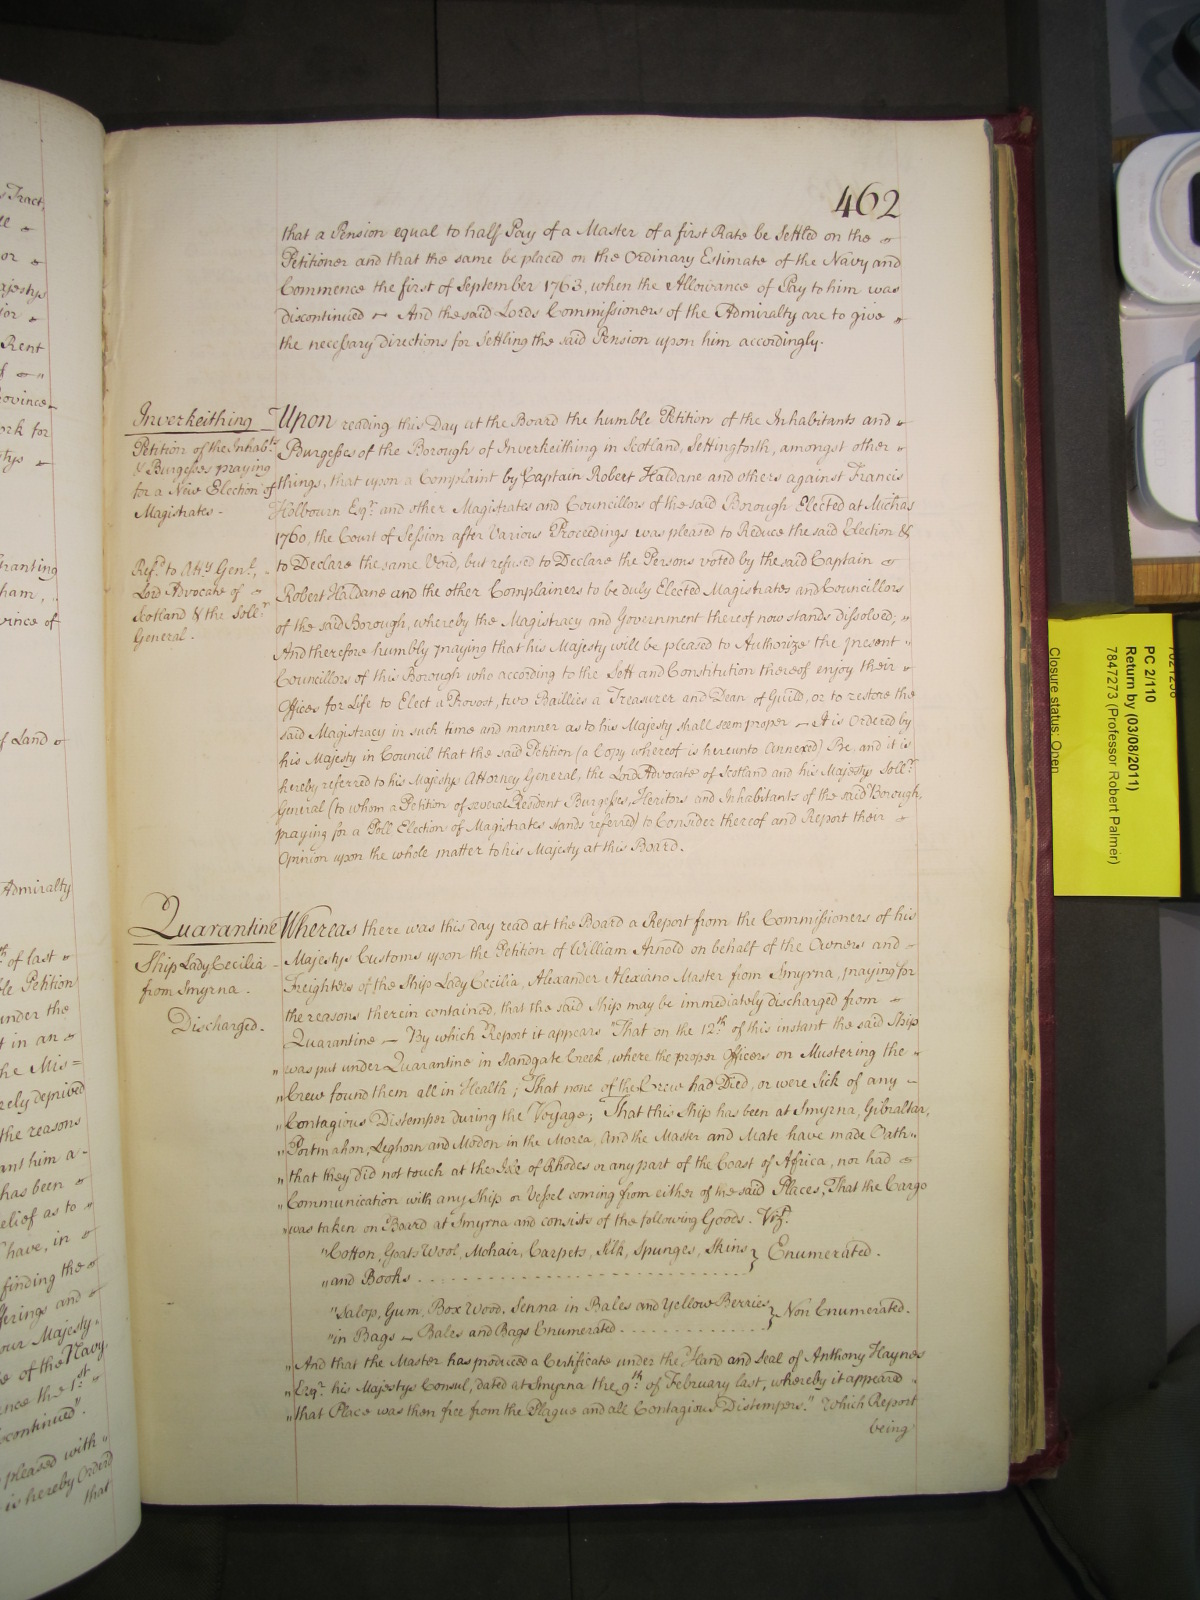 462
that a Pension equal to half Pay of a Master of a first Rate be Settled on the
Petitioner and that the same be placed on the Ordinary Estimate of the Navy and
Commence the first of September 1763, when the Allowance of Pay to him was
discontinued – And the said Lords Commissioners of the Admiralty are to give
the necessary directions for Settling the said Pension upon him accordingly.
Inverkeithing
Petition of the Inhabts.
& Burgesses praying
for a New Election of
Magistrates -
Refd. to Atty. Genl.,
Lord Advocate of
Scotland & the Sollr.
General.
Upon reading this Day at the Board the humble Petition of the Inhabitants and
Burgesses of the Borough of Inverkeithing in Scotland, Setting forth, amongst other
things, that upon a Complaint by Captain Robert Haldane and others against Francis
Holbourn Esqr. and other Magistrates and Councillors of the said Borough Elected at Michas
1760, the Court of Session after Various Proceedings was pleased to Reduce the said Election &
to Declare the same Void, but refused to Declare the Persons voted by the said Captain
Robert Haldane and the other Complainers to be duly Elected Magistrates and Councillors
of the said Borough, whereby the Magistracy and Government thereof now stands dissolved;
And therefore humbly praying that his Majesty will be pleased to Authorize the present
Councillors of this Borough who according to the Sett and Constitution thereof enjoy their
Offices for Life to Elect a Provost, two Baillies a Treasurer and Dean of Guild, or to restore the
said Magistracy in such time and manner as to his Majesty shall seem proper – It is Ordered by
his Majesty in Council that the said Petition (a Copy whereof is hereunto Annexed) Be, and it is
hereby referred to his Majestys Attorney General, the Lord Advocate of Scotland and his Majestys Sollr.
General (to whom a Petition of several Resident Burgesses, Heritors and Inhabitants of the said Borough,
praying for a Poll Election of Magistrates stands referred) to Consider thereof and Report their
Opinion upon the whole matter to his Majesty at this Board.
Quarantine
Ship Lady Cecilia
from Smyrna.
Discharged.
Whereas there was this day read at the Board a Report from the Commissioners of his
Majestys Customs upon the Petition of William Arnold on behalf of the Owners and
Freighters of the Ship Lady Cecilia, Alexander Alexiano Master from Smyrna, praying for
the reasons therein contained, that the said Ship may be immediately discharged from
Quarantine – By which Report it appears "That on the 12th. of this instant the said Ship
"was put under Quarantine in Standgate Creek, where the proper Officers on Mustering the
"Crew found them all in Health; That none of the Crew had Died, or were Sick of any
"Contagious Distemper during the Voyage; That this Ship has been at Smyrna, Gibraltar,
"Portmahon, Leghorn and Modon in the Morea, And the Master and Mate have made Oath
"that they did not touch at the Isle of Rhodes or any part of the Coast of Africa, nor had
"Communication with any Ship or Vessel coming from either of the said Places, That the Cargo
"was taken on Board at Smyrna and consists of the following Goods. Vizt.
"Cotton, Goats Wool, Mohair, Carpets, Silk, Spunges, Skins } Enumerated.
"and Books
"Salop, Gum, Box Wood, Senna in Bales and Yellow Berries } Non Enumerated.
"in Bags – Bales and Bags Enumerated
"And that the Master has produced a Certificate under the Hand and Seal of Anthony Haynes
"Esqr. his Majestys Consul, dated at Smyrna the 9th. of February last, whereby it appeared
"that Place was then free from the Plague and all Contagious Distempers." Which Report
being
s Tract,
Rent
ovince
ork for
ranting
ham,
vince of
f Land
Admiralty
th. of last
le Petition
under the
t in an
he Mis=
rely deprived
the reasons
ans him a-
has been
elief as to
have, in
finding the
ferings and
our Majesty,
e of the Navy,
ence the 1st.
scontinued".
pleased with
is hereby Orderd
that
PC 2/110
Return by (03/08/2011)
7847273 (Professor Robert Palmer)
Closure status: Open